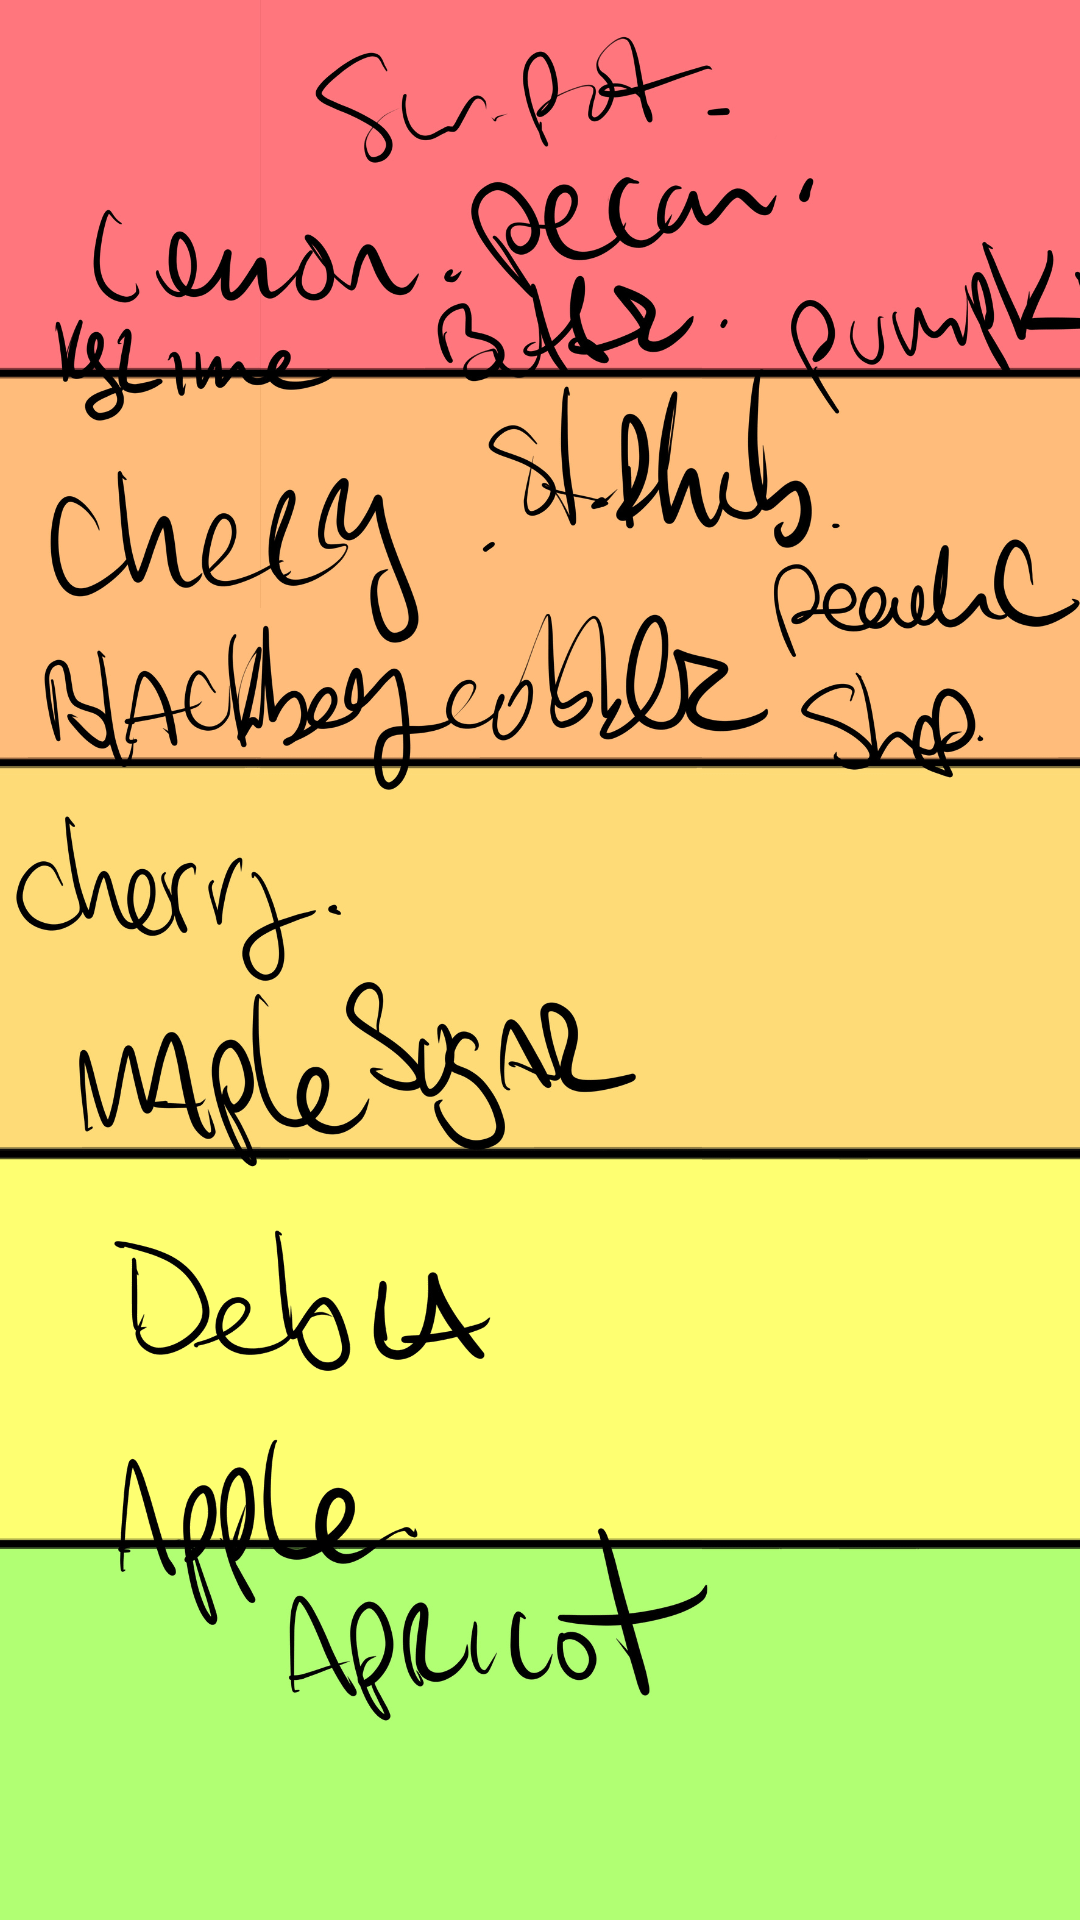 Sw. Pot -
Lemon. Pecan.
Key Lime Butter. Pumpk
Cheery. St. Rhub.
Peach C
Blackbery cobbler Shop.
cherry.
Maple Sugar
Deb
Apple
Apricot